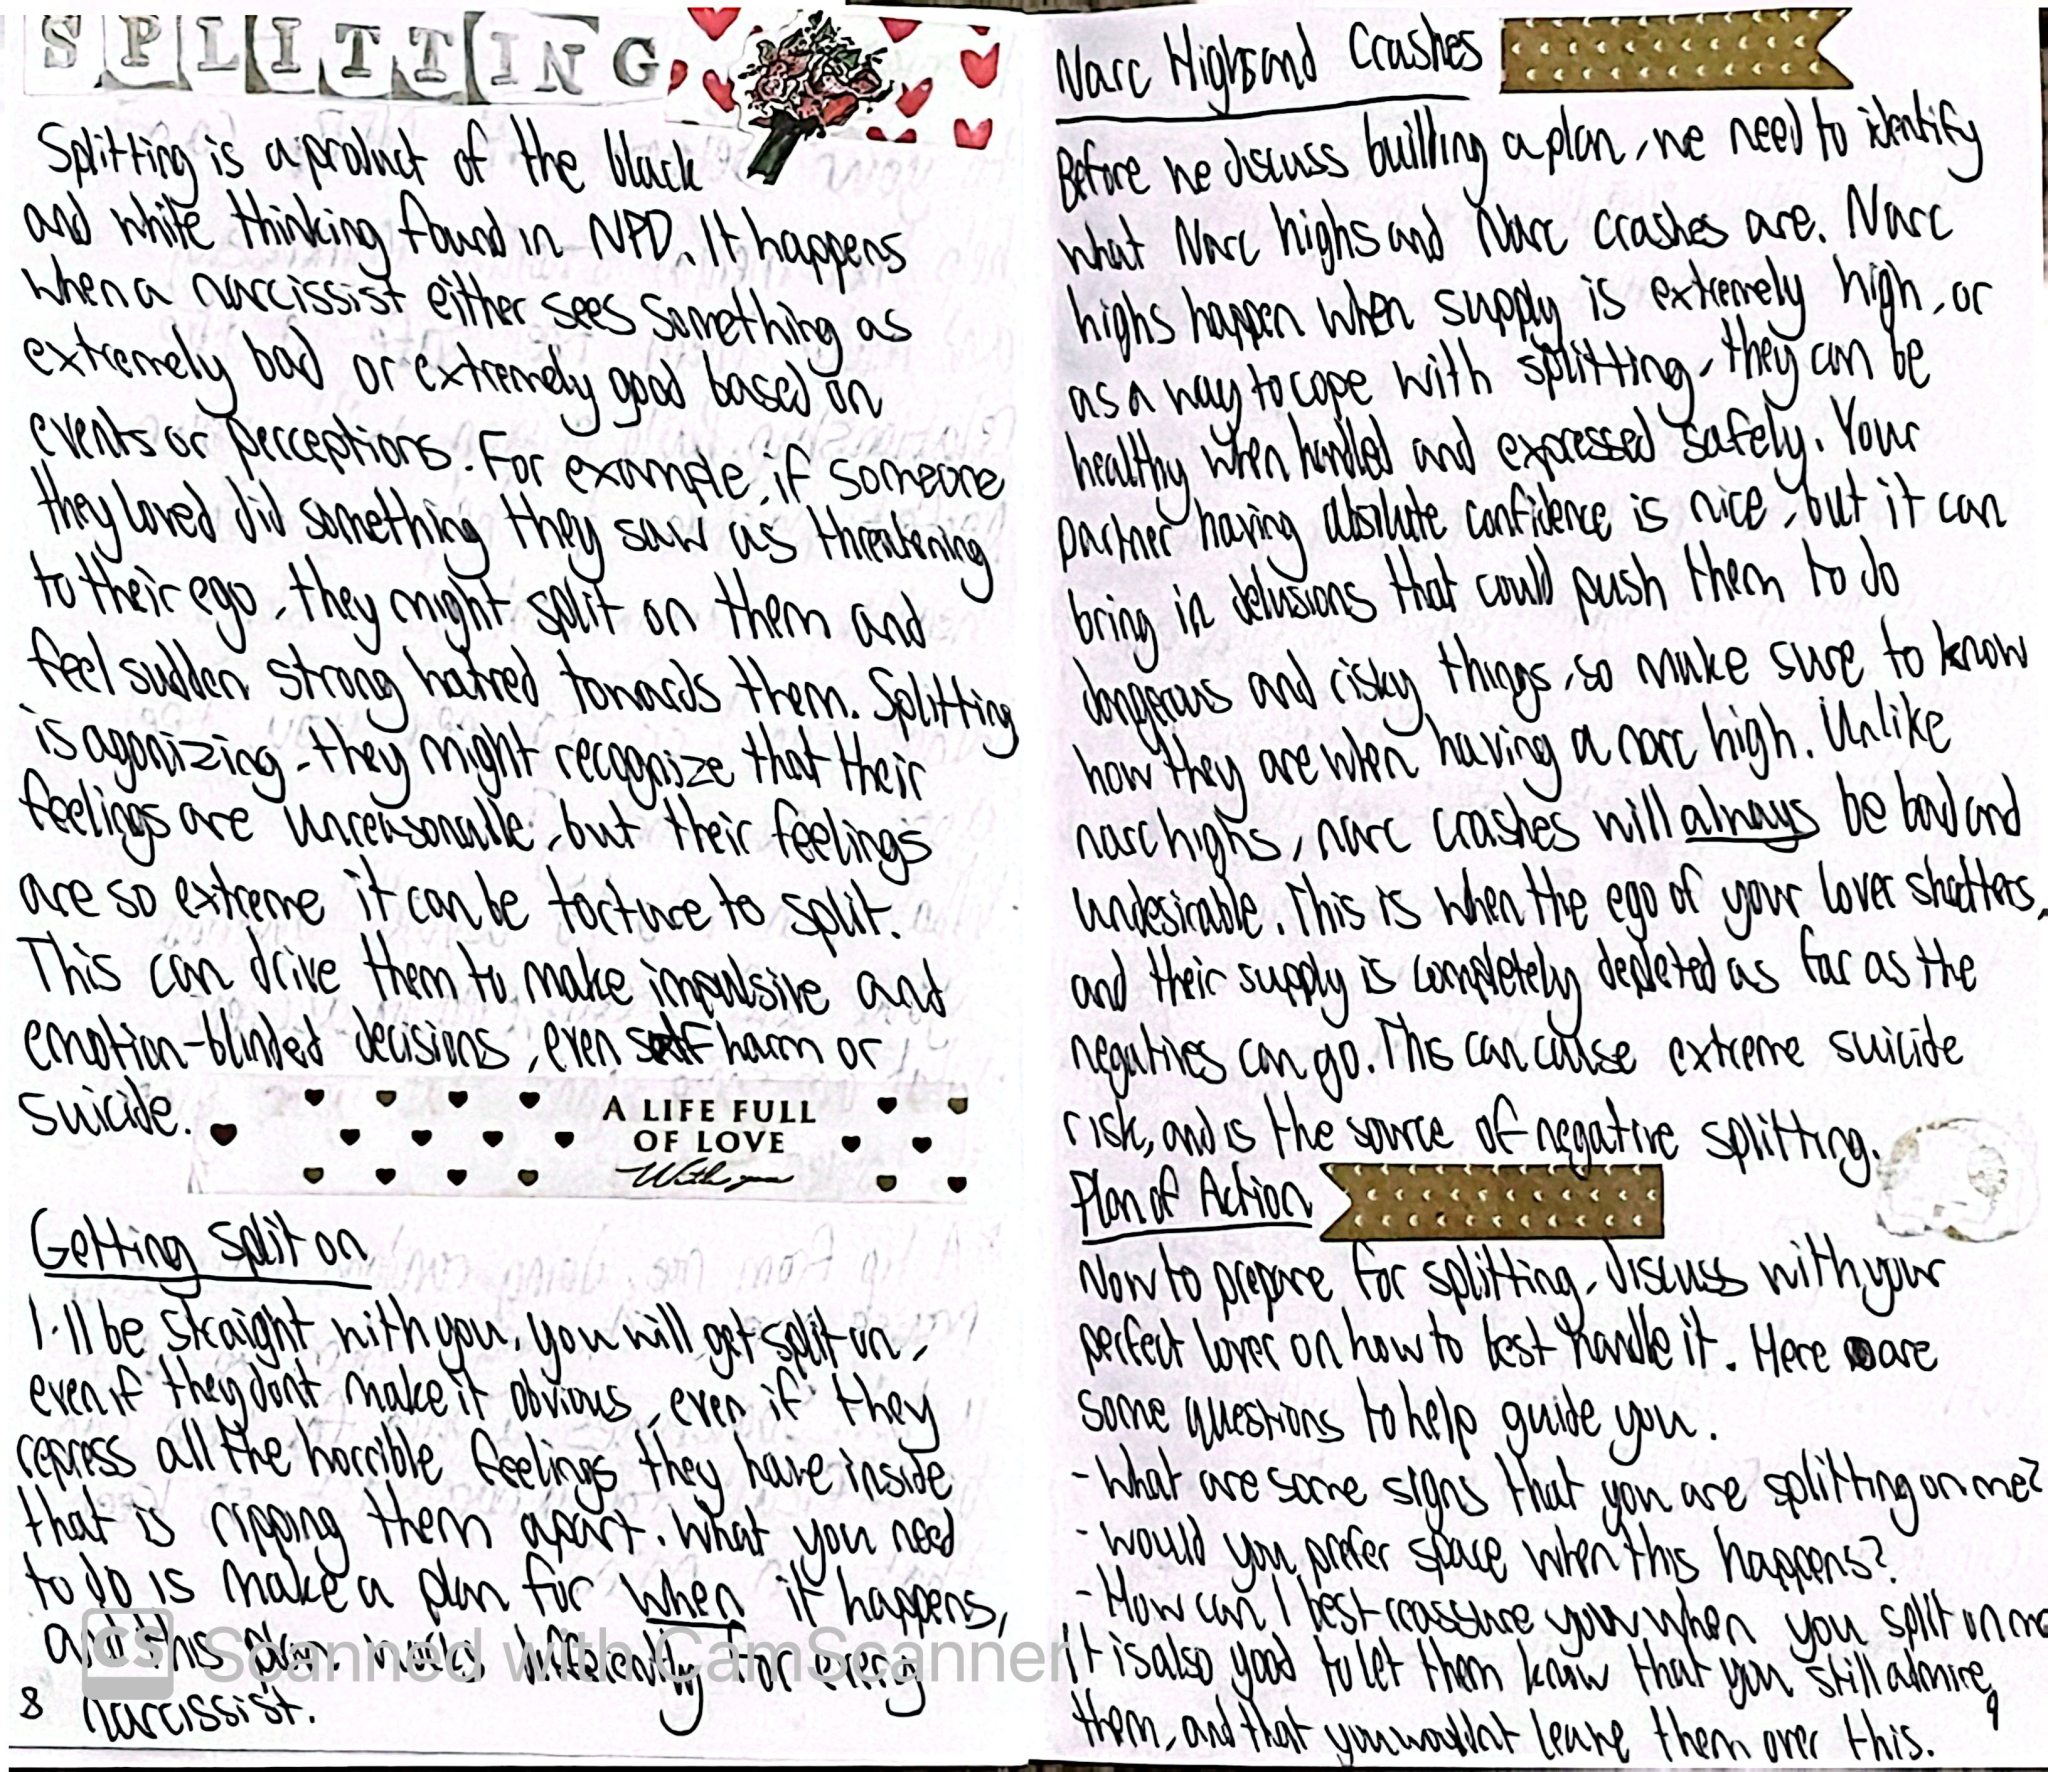 SPLITTING
Splitting is a product of the black
and white thinking found in NPD. It happens
when a narcissist either sees something as
extremely bad or extremely good based on
events or perceptions. For example, if someone
they loved did something they saw as threatening
to their ego, they might split on them and
feel sudden strong hatred towards them. Splitting
is agonizing, they might recognize that their
feelings are unreasonable, but their feelings
are so extreme it can be torture to split.
This can drive them to make impulsive and
emotion-blinded decisions, even self harm or
suicide.
A LIFE FULL
OF LOVE
With you
Getting split on
I'll be straight with you, you will get split on,
even if they dont make it obvious, even if they
repress all the horrible feelings they have inside
that is ripping them apart. What you need
to do is make a plan for when it happens,
and this plan works differently for every
narcissist.
8
Narc Highs and Crashes
Before we discuss building a plan, we need to identify
what Narc highs and Narc crashes are. Narc
highs happen when supply is extremely high, or
as a way to cope with splitting, they can be
healthy when handled and expressed safely. Your
partner having absolute confidence is nice, but it can
bring in delusions that could push them to do
dangerous and risky things, so make sure to know
how they are when having a narc high. Unlike
narc highs, narc crashes will always be bad and
undesirable. This is when the ego of your lover shatters,
and their supply is completely depleted as far as the
negatives can go. This can cause extreme suicide
risk, and is the source of negative splitting.
Plan of Action
Now to prepare for splitting, discuss with your
perfect lover on how to best handle it. Here are
some questions to help guide you.
- What are some signs that you are splitting on me?
- Would you prefer space when this happens?
- How can I best reassure you when you split on me
It is also good to let them know that you still admire
them, and that you wouldnt leave them over this.
9
CS Scanned with CamScanner